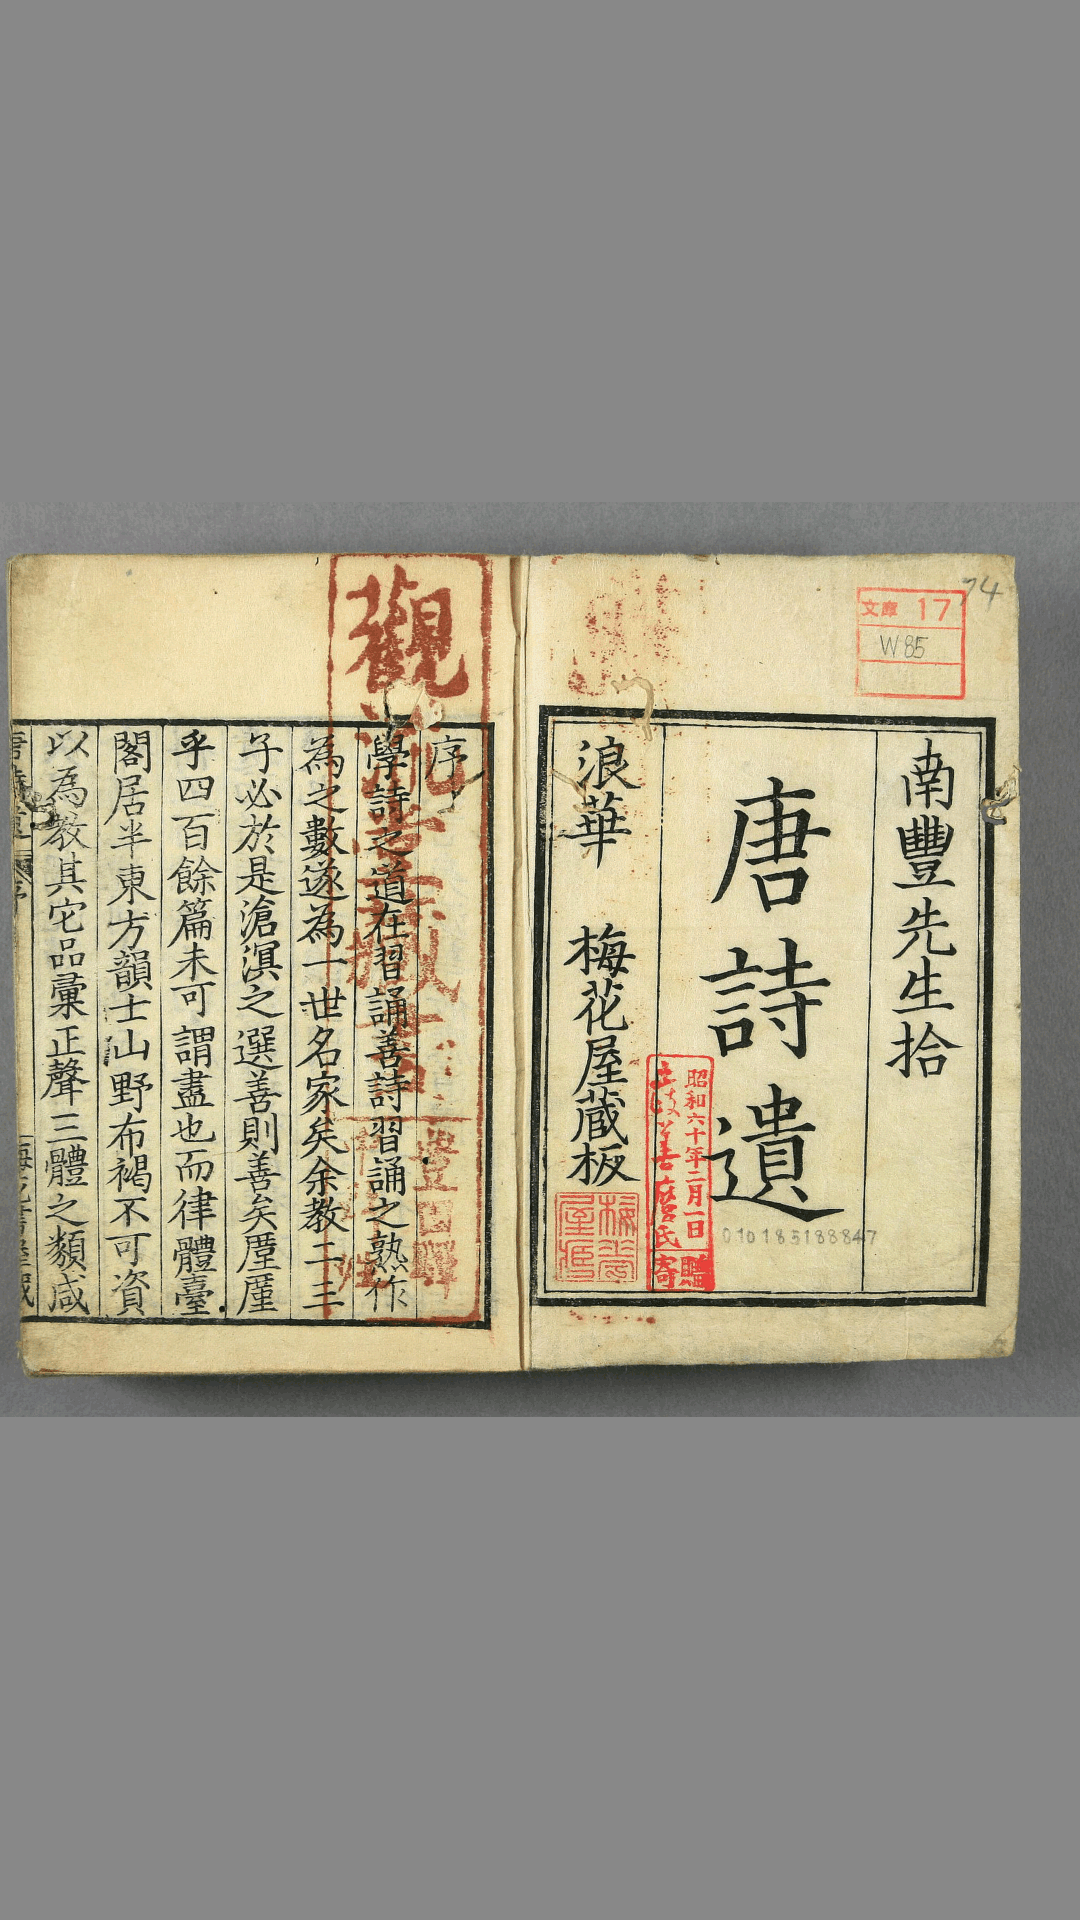 74
文庫 17
W85
南豐先生拾
唐詩遺
浪華 梅花屋蔵板
昭和六十年二月一日
善麿氏
寄贈
010185188847
序
學詩之道在習誦善詩習誦之熟作
為之數遂為一世名家矣余教二三
子必於是滄溟之選善則善矣厪厪
乎四百餘篇未可謂盡也而律體臺
閣居半東方韻士山野布褐不可資
以為教其它品彙正聲三體之類咸
觀